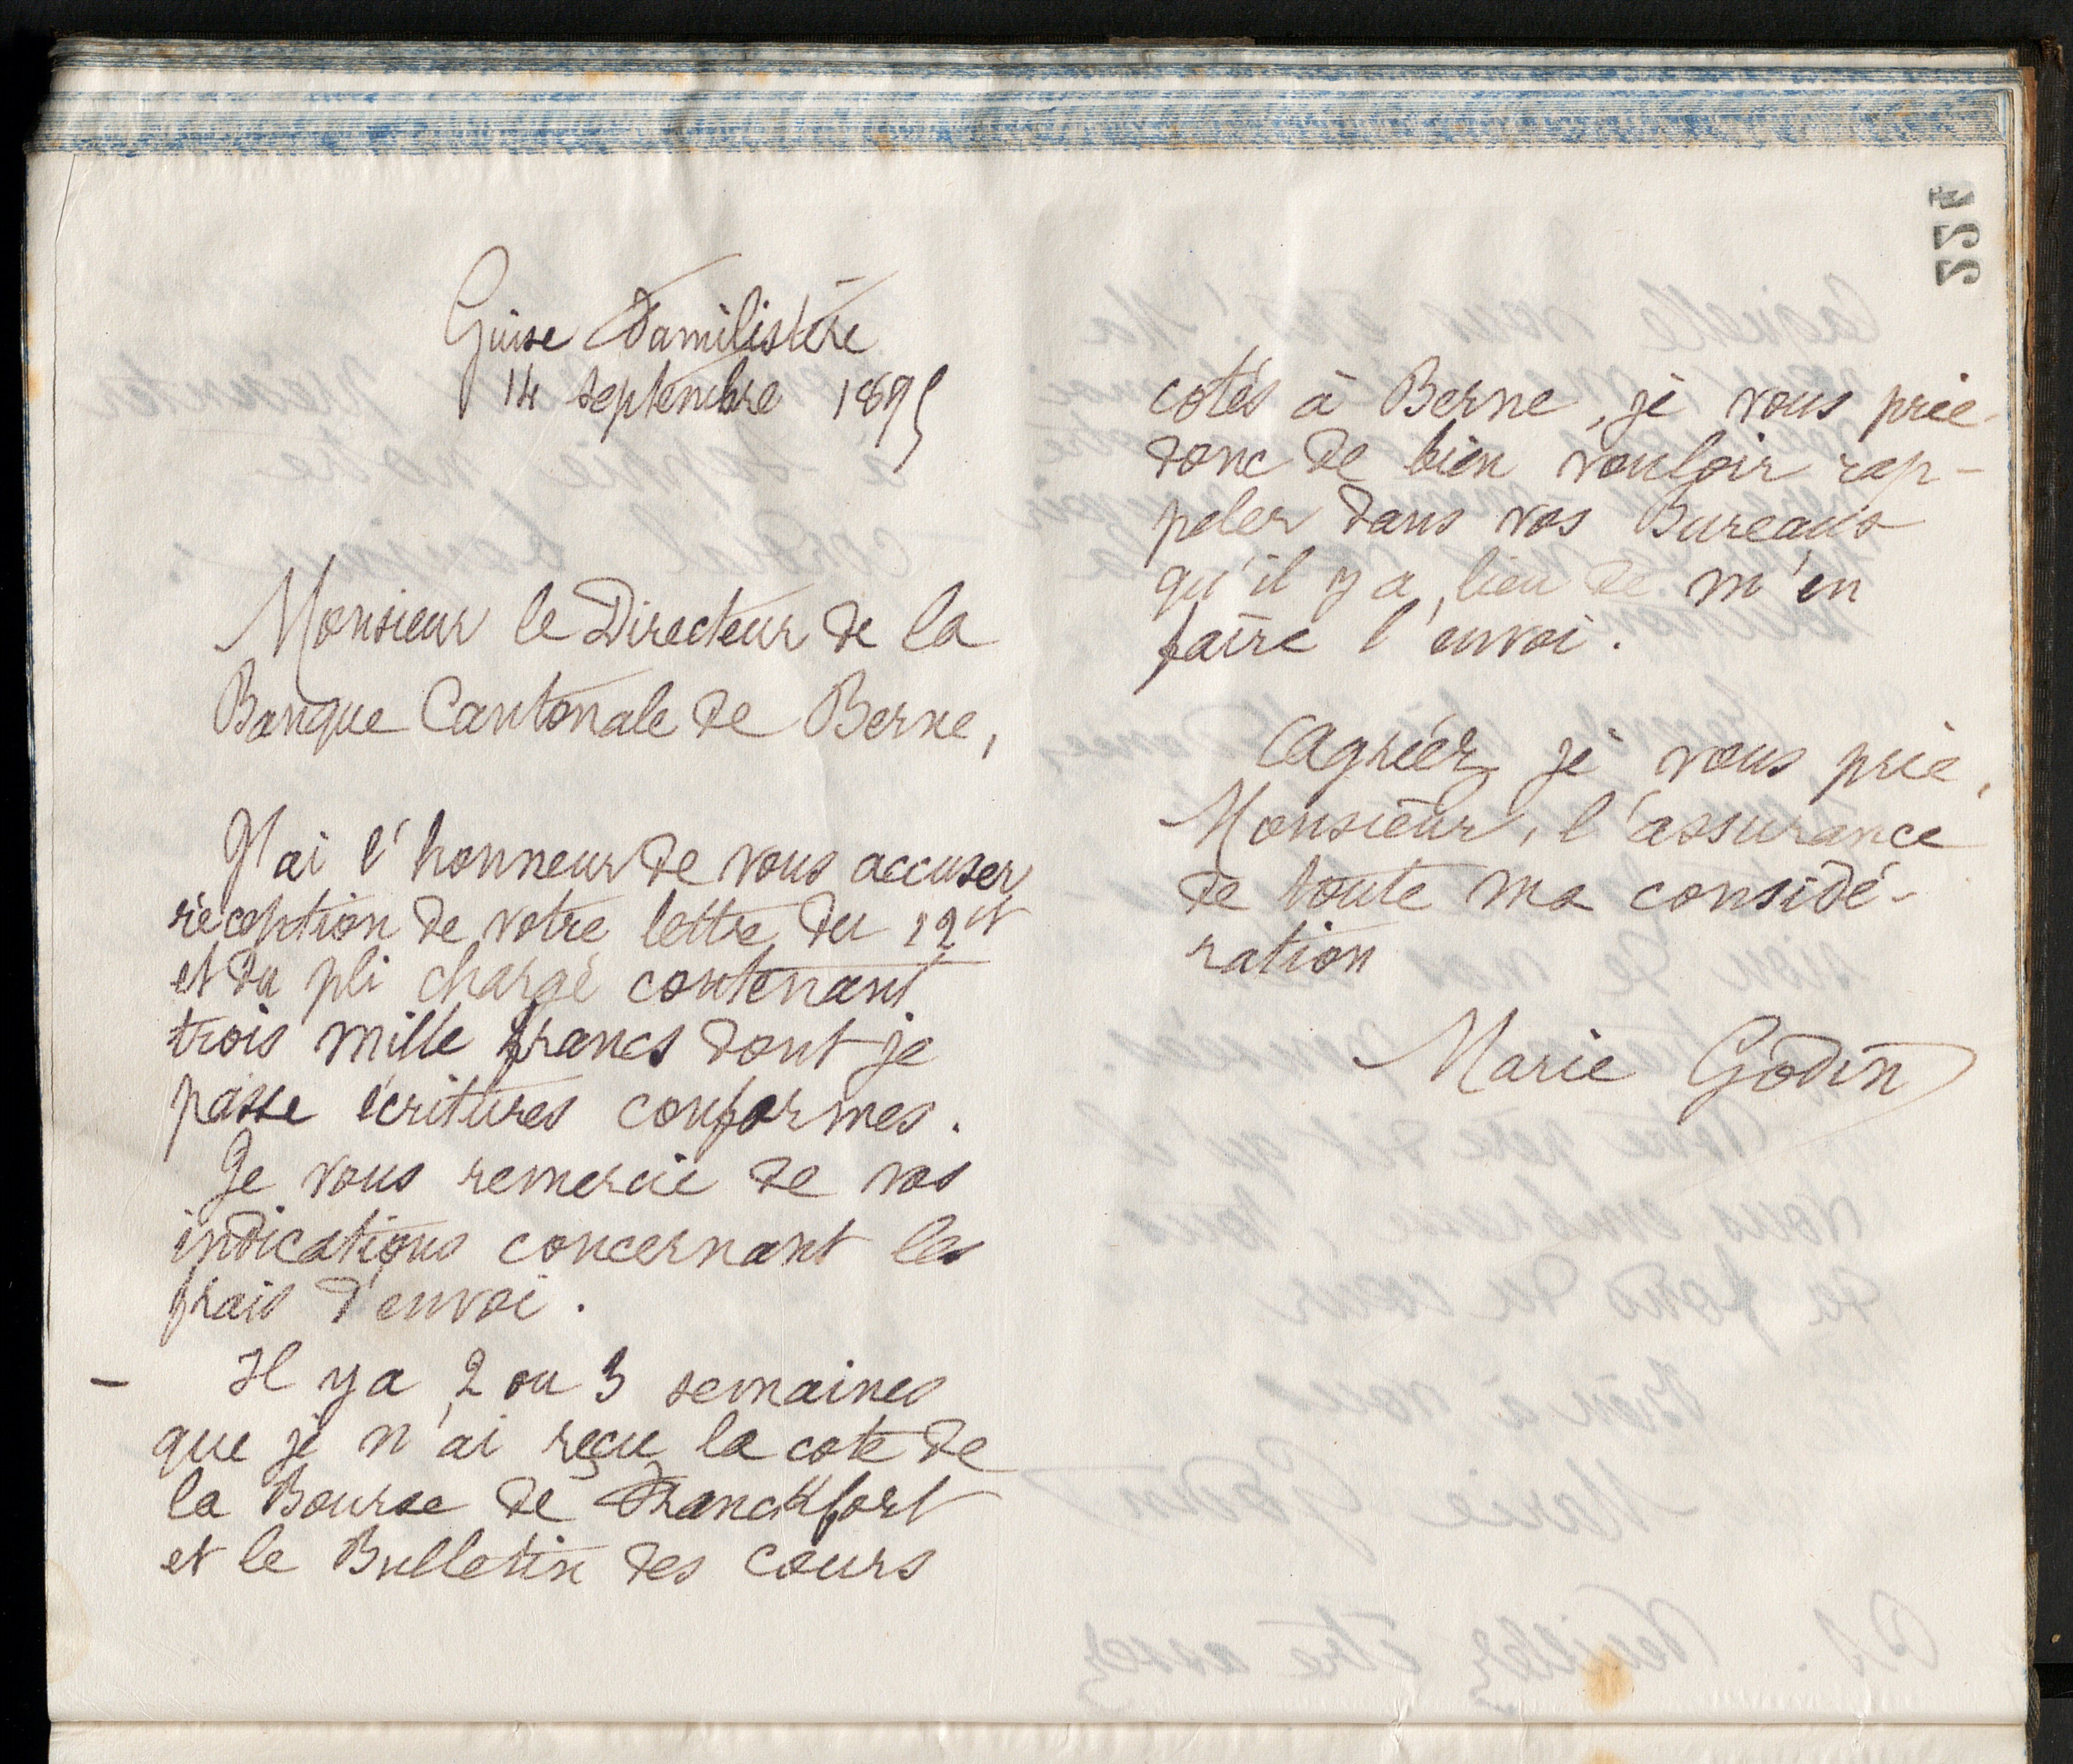 Guise Familistère
14 septembre 1895
Monsieur le Directeur de la
Banque Cantonale de Berne,
J'ai l'honneur de vous accuser
réception de votre lettre du 12 ct
et du pli chargé contenant
trois mille francs dont je
passe écritures conformes.
Je vous remercie de vos
indications concernant les
frais d'envoi.
– Il y a 2 ou 3 semaines
que je n'ai reçu la cote de
la Bourse de Franckfort
et le Bulletin des cours
cotés à Berne, je vous prie
donc de bien vouloir rap-
peler dans vos Bureaux
qu'il y a lieu de m'en
faire l'envoi.
Agréez je vous prie,
Monsieur, l'assurance
de toute ma considé-
ration
Marie Godin